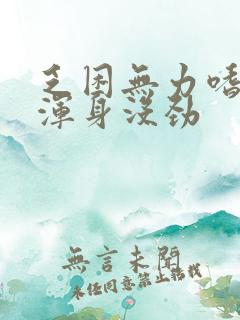 乏困無力嗜
渾身沒勁
無言未開
未經同意禁止轉載